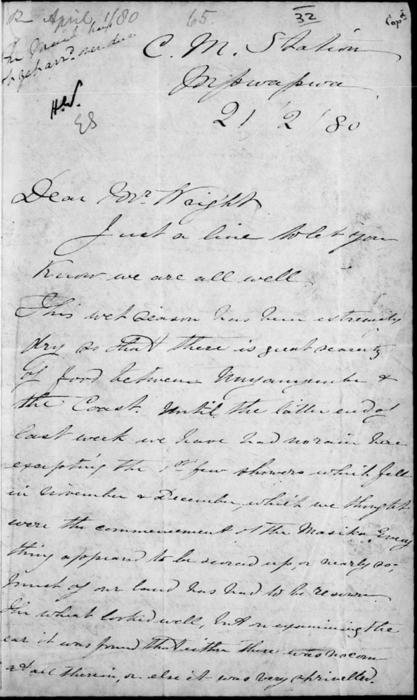 R April 1/80 65. 32
H.W.
C. M. Station
Mpwapwa
21/2/80
Dear Mr. Wright
Just a line to let you
know we are all well.
This wet season has been extremely
dry so that there is great scarcity
of food between Unyanyembe &
the Coast. Until the latter end of
last week we have had no rain here
excepting the 1st few showers which fell
in November & December, which we thought
were the commencement of the Masika. Every
thing appeared to be scored up or nearly so.
Much of our land has had to be resown.
Our wheat looked well, but on examining the
ear it was found that either there was no corn
at all therein, or else it was very shrivelled.